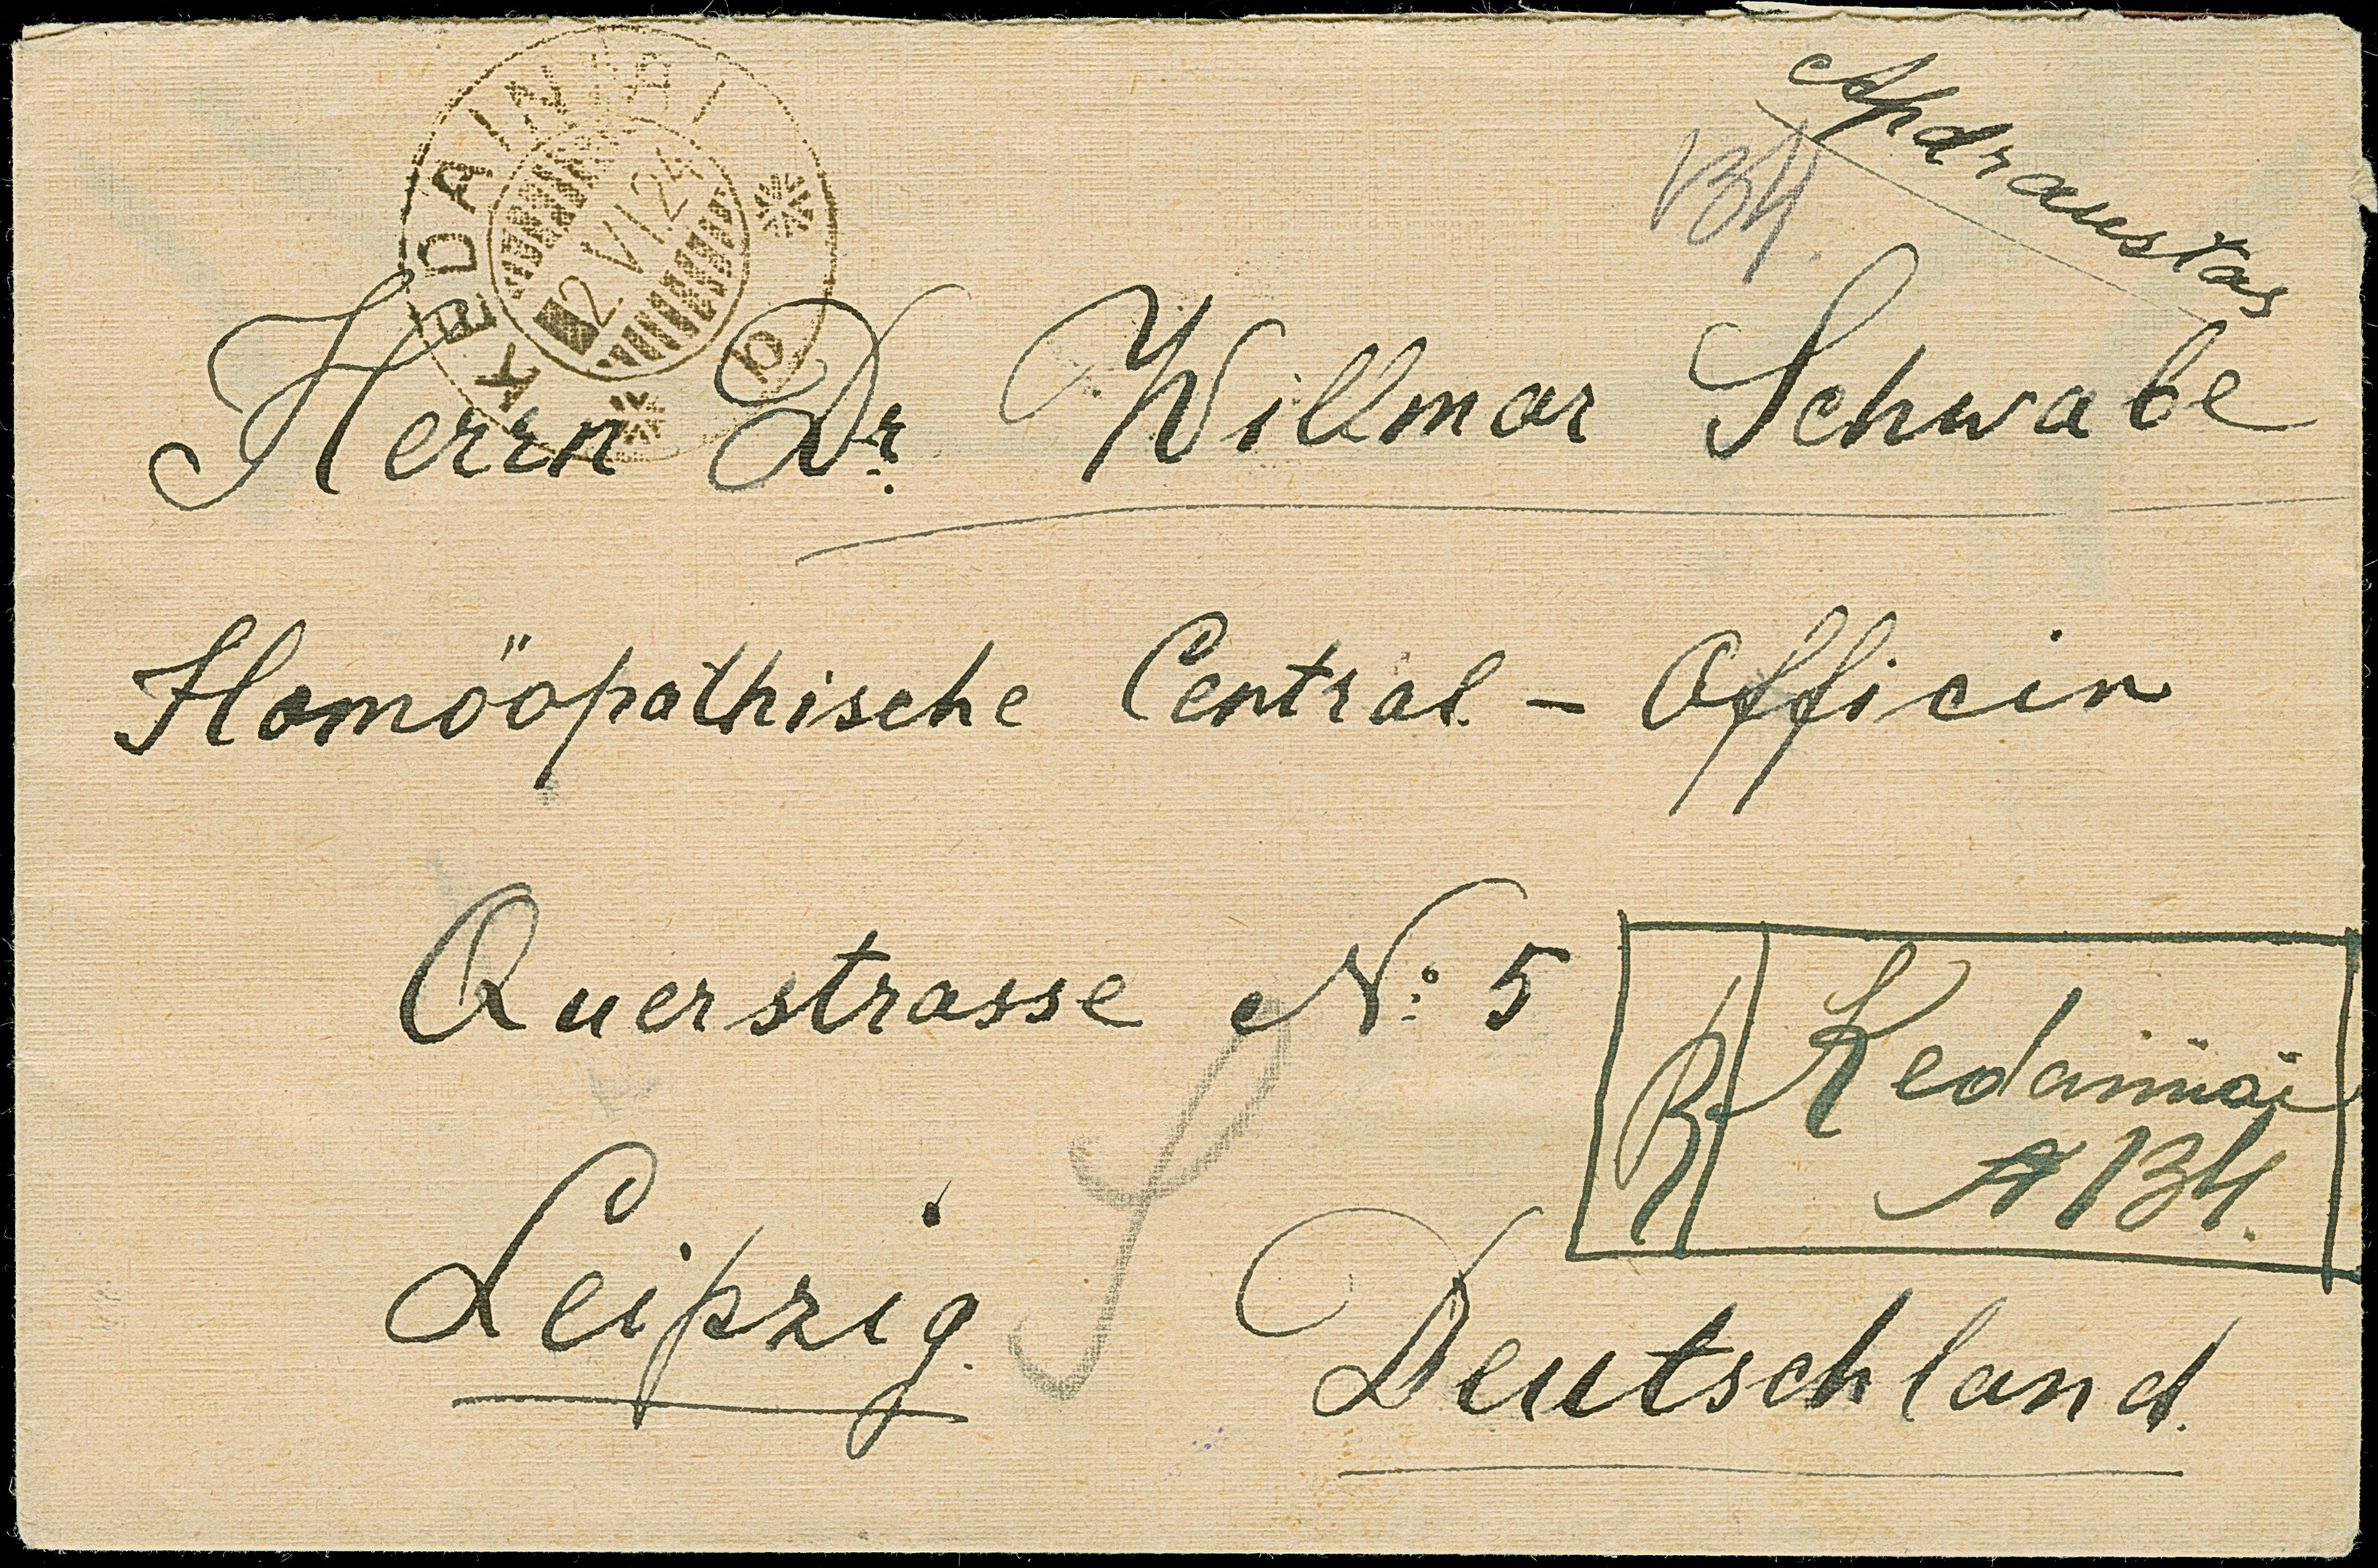 KĖDAINIAI
2 VI 24
b
Apdraustas
134.
Herrn Dr. Willmar Schwabe
Homöopathische Central - Officin
Querstrasse No: 5
R
Kedainiai
№ 134.
Leipzig.
Deutschland.